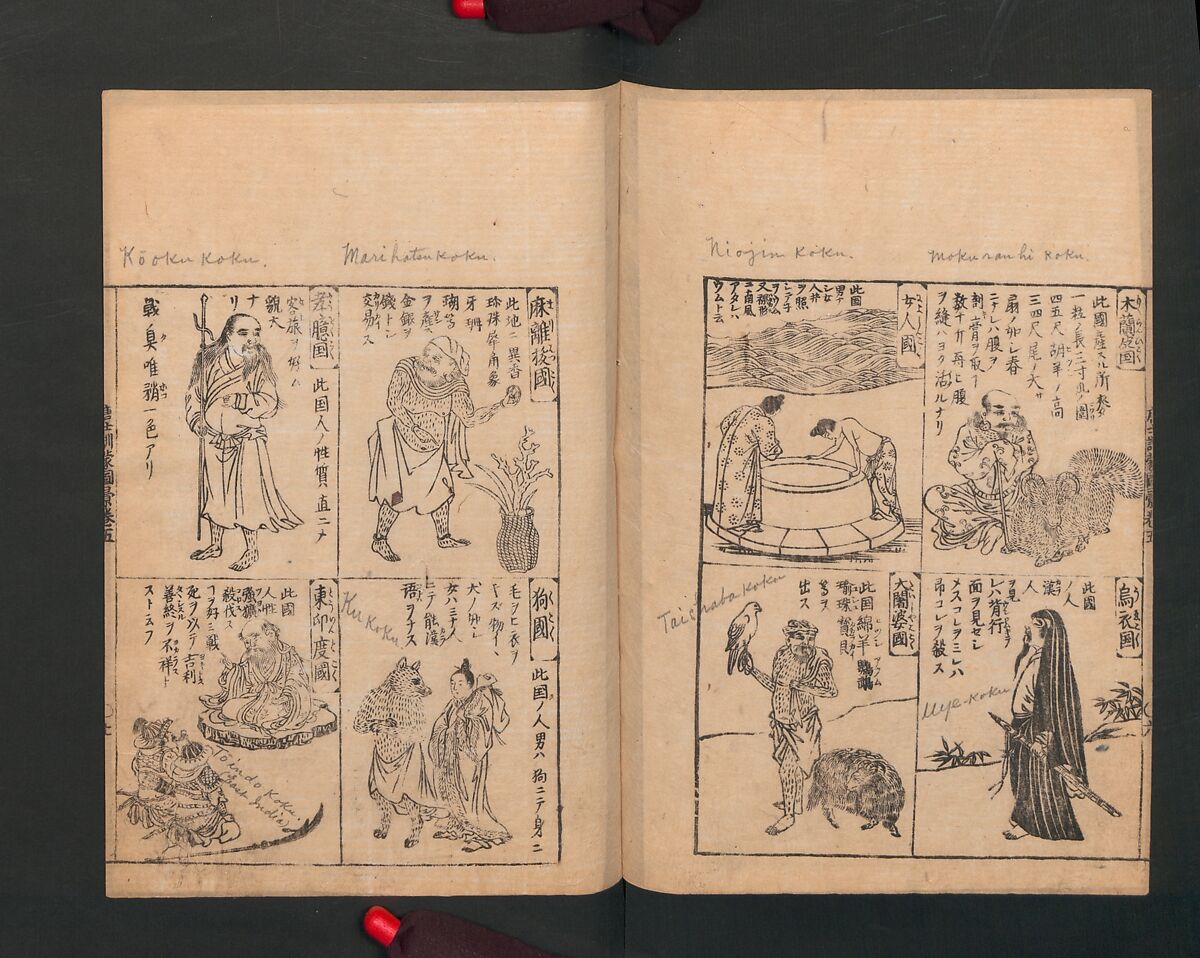 Mokuranhi Koku.
木蘭皮国
此國産スル所麥
一粒ノ長三寸瓜ノ圍
四五尺胡羊ノ高
三四尺尾ノ大サ
扇ノ如シ春
ニナレハ腹ヲ
割膏ヲ取事
数十斤再ヒ腹
ヲ縫ハヨク活ルナリ
Niojin Koku.
女人國
此国
男ナ
シ女
人井
ヲ照
シテ子
ヲウム
又裸形
ニ南風
アタレハ
ウムト云
烏衣国
此國
ノ人
漢
人
ヲ見
レハ背行
面ヲ見セシ
メスコレヲミレハ
コレヲ殺ス
Uye-Koku
大闍婆國
此国綿羊鸚鵡
珠寶貝
等ヲ
出ス
Taichaba Koku
Marihatsu Koku.
麻離拔國
此地ニ異香
珍珠犀角象
牙珊
瑚等
ヲ産ス
金銀ヲ
錢トシ
交易ス
Kōoku Koku.
臆国
此国人ノ性質直ニ〆
客旅ヲ好ム
貌大
ナ
リ
一色アリ
狗國
此国ノ人男ハ狗ニテ身ニ
毛ヲヒ衣ヲ
キズ物
犬ノ如シ
女ハミナ人
ニテ能漢
語ヲナス
Ku Koku
東印度國
此國
人性
強獷
殺伐ス
コヲ好ミ戦
死ヲ以テ吉利
善終ヲ不祥ト
スト
Tōindo Koku.
(East India)